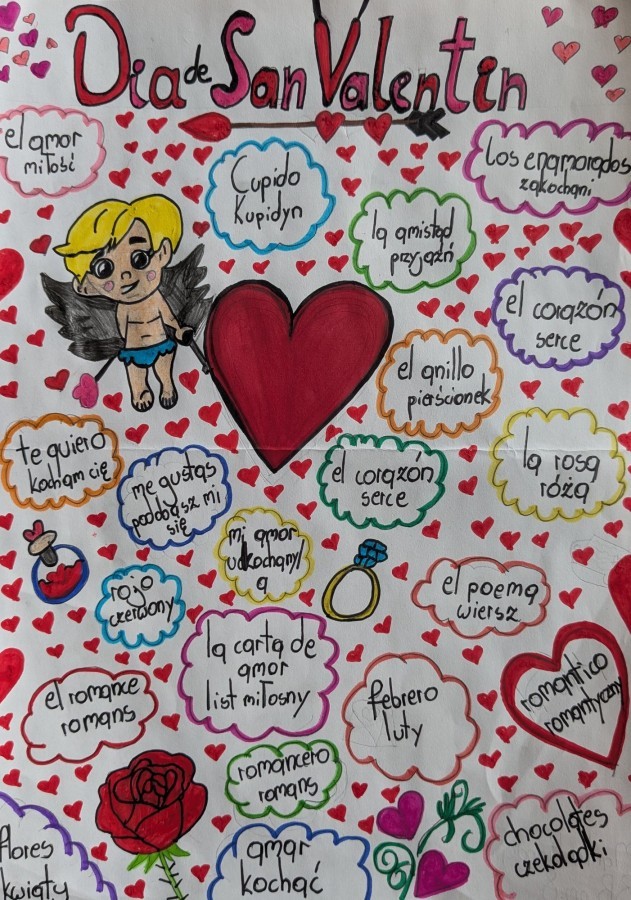 Dia de San Valentin
el amor
miłość
Cupido
Kupidyn
los enamorados
zakochani
la amistad
przyjaźń
el corazón
serce
el anillo
pierścionek
te quiero
kocham cię
me gustas
podobasz mi
się
el corazón
serce
la rosa
róża
mi amor
udkochany/
a
rojo
czerwony
el poema
wiersz
la carta de
amor
list miłosny
el romance
romans
febrero
luty
romantico
romantyczny
romancero
romans
flores
kwiaty
amar
kochać
chocolates
czekoladki